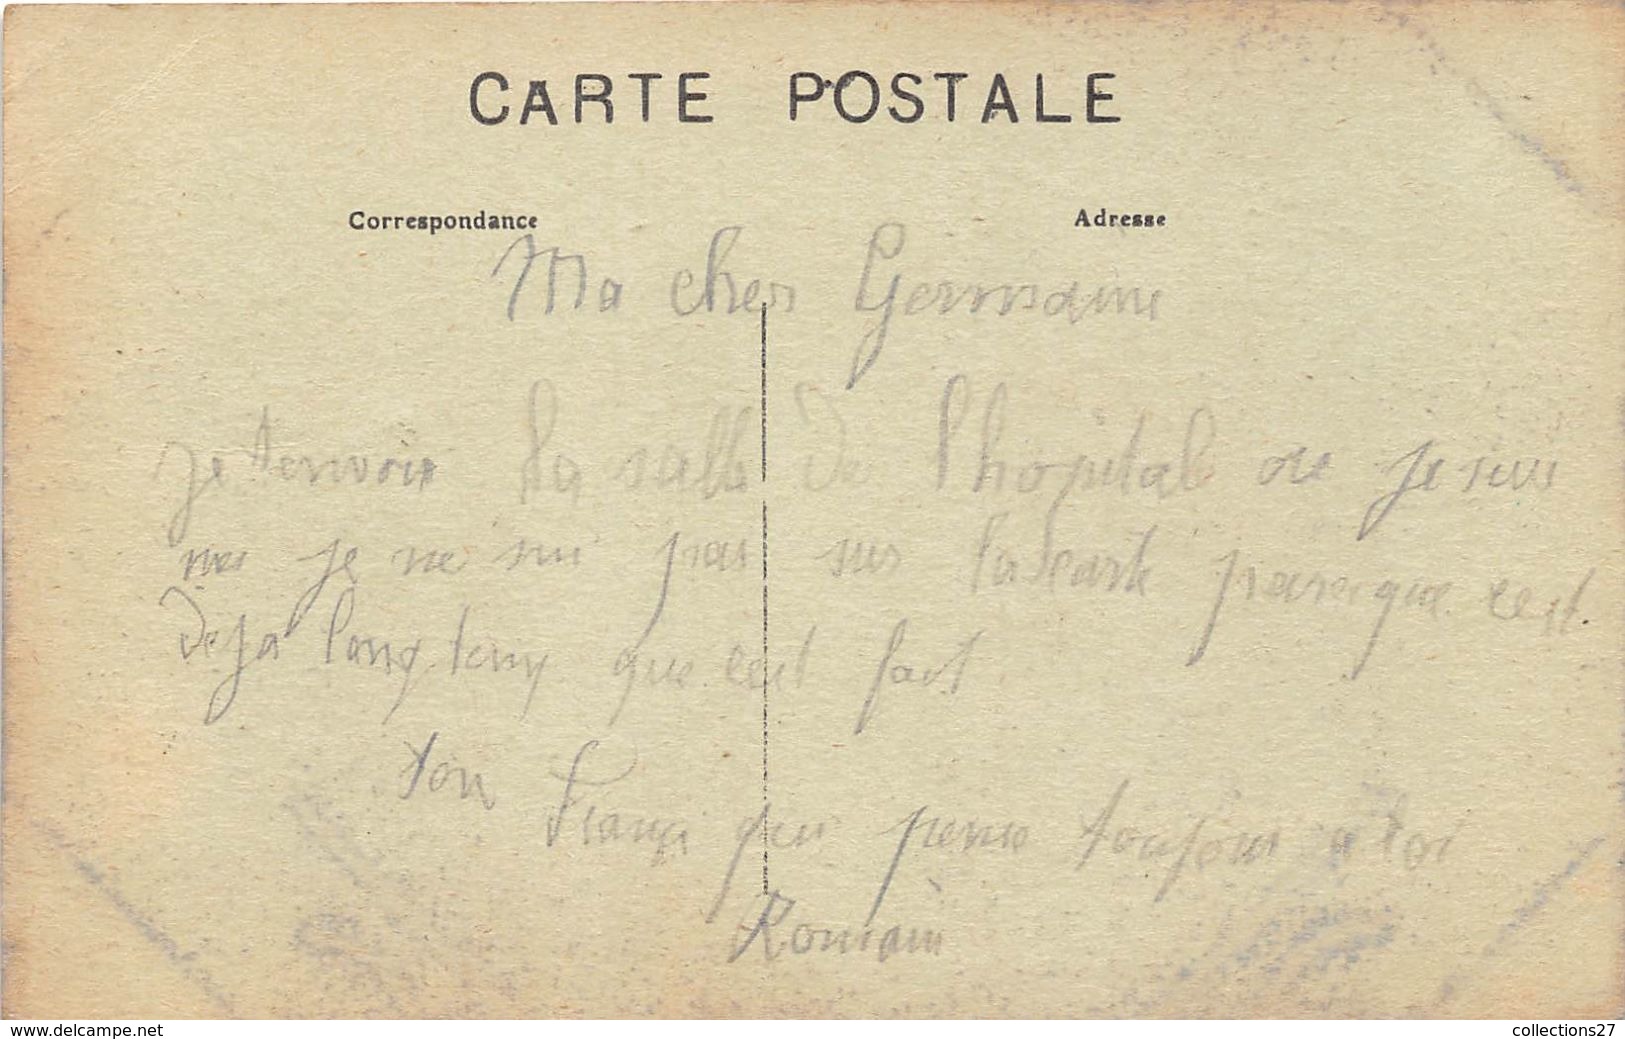 CARTE POSTALE
Correspondance
Adresse
Ma cher Germaine
je tenvoie la salle de l'hopital ou je suis
mes je ne sui pas sur la carte parceque cest
deja longtemp que cest fait
ton Françi qui pense toujour a toi
Romain
www.delcampe.net
collections27